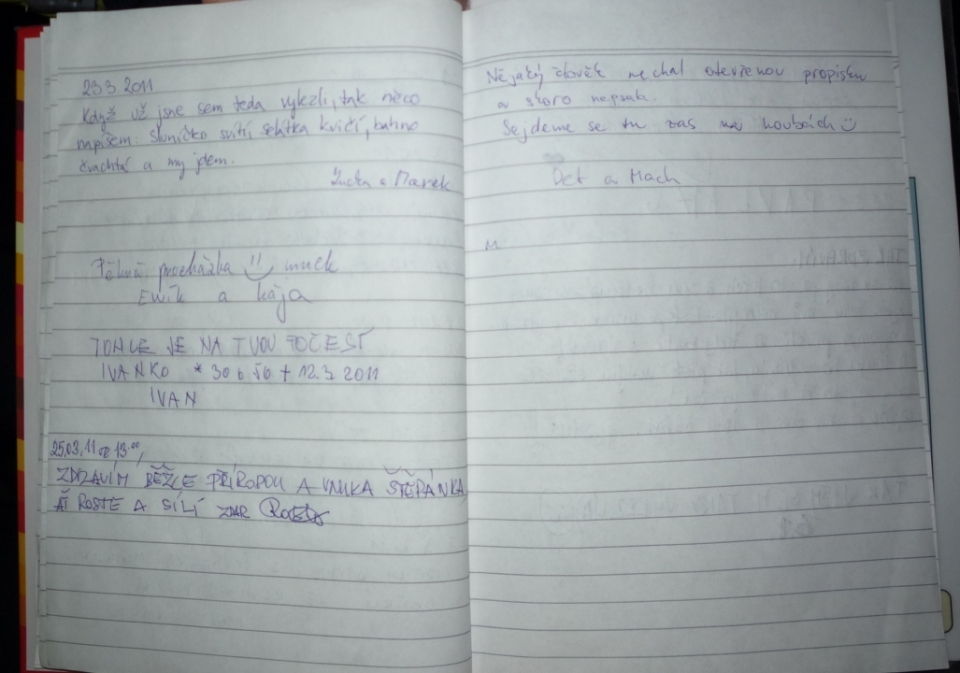 23.3. 2011
Když už jsme sem teda vylezli, tak něco
napíšem: Sluníčko svítí, selátka kvičí, bahno
čvachtá a my jdem.
a Marek
Pěkná procházka muck
Emík a Kája
TOHLE JE NA TVOU POČEST
IVANKO * 30 6 50 + 12.3 2011
IVAN
25.03.11 13.00,
ZDRAVÍM BĚŽCE PŘÍRODOU A VNUKA ŠTĚPÁNKA
AŤ ROSTE A SÍLÍ ZDAR
Nějaký člověk nechal otevřenou propisku
a skoro nepsala.
Sejdeme se tu zas na houbách
Det a Mach
M